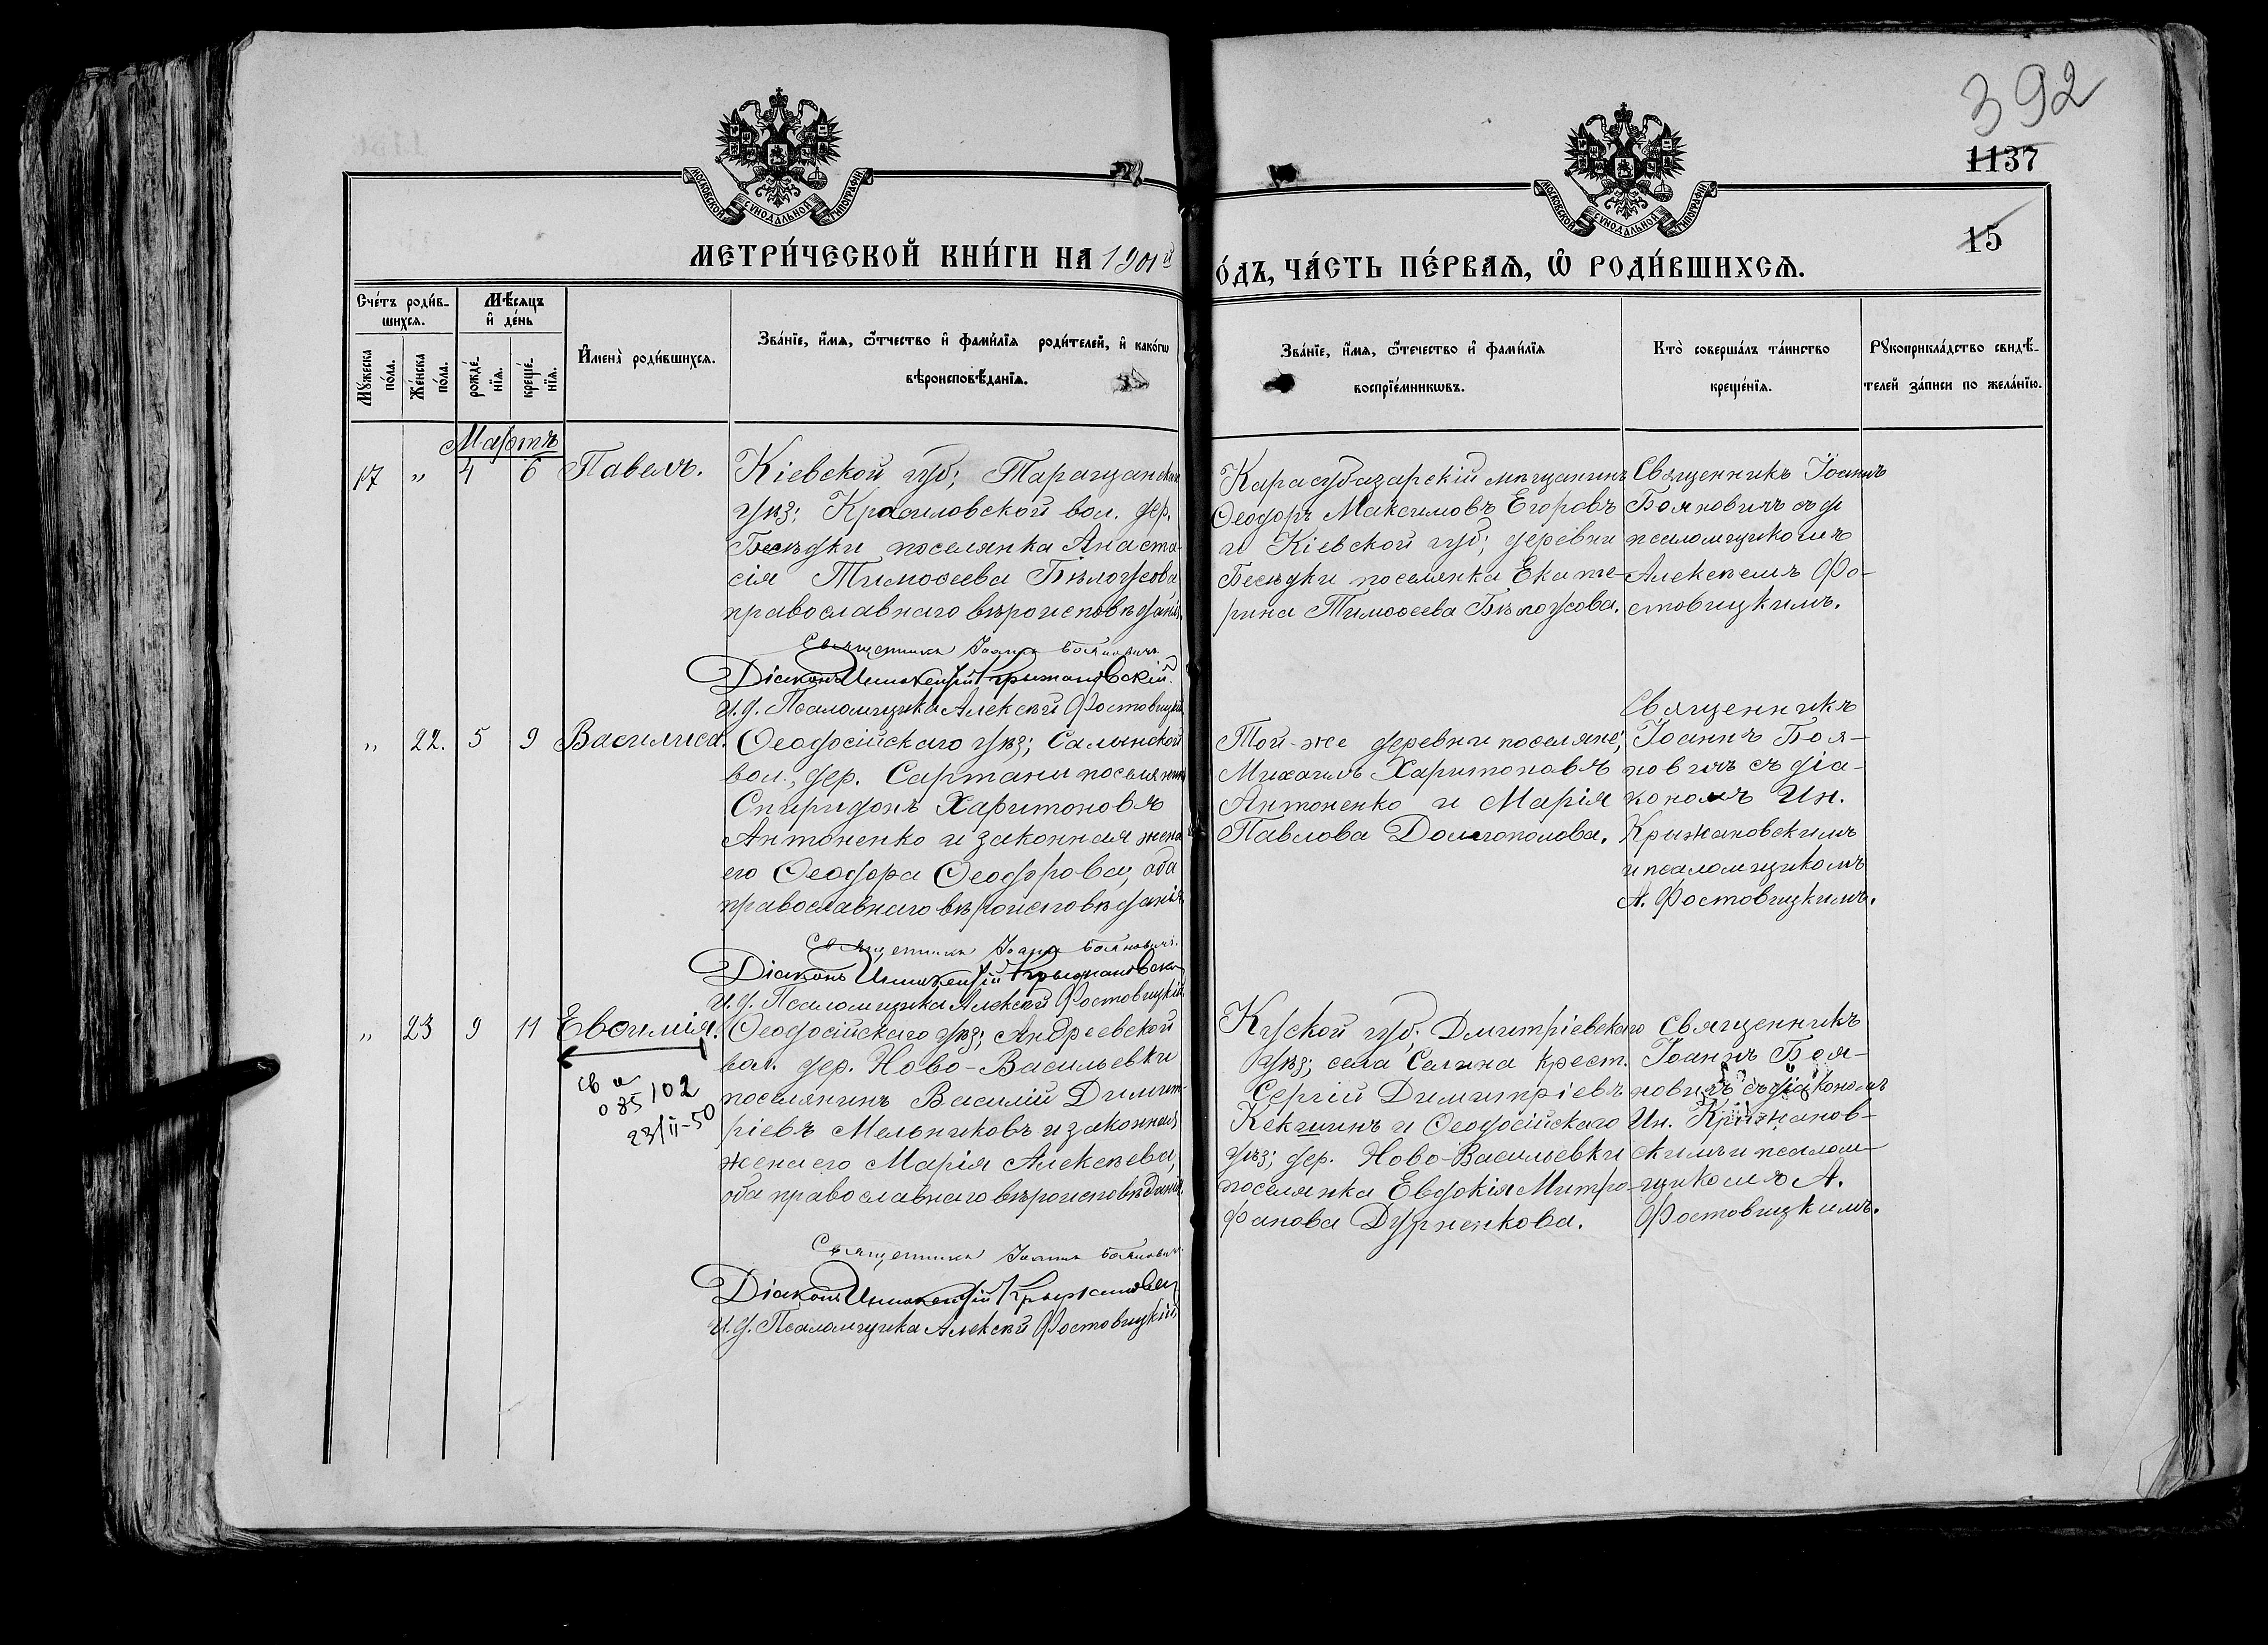 392
1137
15
МОСКОВСКОЙ СѴНОДАЛЬНОЙ ТИПОГРАФІИ
МОСКОВСКОЙ СѴНОДАЛЬНОЙ ТИПОГРАФІИ
МЕТРИ́ЧЕСКОЙ КНИ́ГИ НА 1901й
О́ДЪ, ЧА́СТЬ ПЕ́РВАѦ, Ѡ҆ РОДИ́ВШИХСѦ.
Сче́тъ роди́в-
шихсѧ.
Мѣ́сѧцъ
и҆ де́нь
Мꙋ́жеска
по́ла.
Же́нска
по́ла.
рожде́-
нїѧ.
креще́-
нїѧ.
И҆мена̀ роди́вшихсѧ.
Зва́нїе, и҆́мѧ, ѻ҆́тчество и҆ фами́лїѧ роди́телей, и҆ како́гѡ
вѣроисповѣ́данїѧ.
Зва́нїе, и҆́мѧ, ѻ҆те́чество и҆ фами́лїѧ
воспрїе́мникѡвъ.
Кто̀ соверша́лъ та́инство
креще́нїѧ.
Рꙋкоприкла́дство свидѣ́-
телей за́писи по жела́нїю.
Мартъ
17 „ 4 6 Павелъ.
Кіевской губ; Таращанской
уѣз; Красиловской вол. дер.
Бесѣдки поселянка Анаста-
сія Тимоѳеева Бѣлоусова
православнаго вѣроисповѣданія.
Священникъ Іоаннъ Бояновичъ
Діаконъ Иннокентій Крыжановскій.
И.д. Псаломщика Алексѣй Фостовицкій
Карасубазарскій мѣщанинъ
Ѳеодоръ Максимовъ Егоровъ
и Кіевской губ; деревни
Бесѣдки поселянка Екате-
рина Тимоѳеева Бѣлоусова.
Священникъ Іоаннъ
Бояновичъ съ
псаломщикомъ
Алексѣемъ Фо-
стовицкимъ.
„ 22. 5 9 Василиса.
Ѳеодосійскаго уѣз; Салынской
вол., дер. Сартани поселянинъ
Спиридонъ Харитоновъ
Антоненко и законная жена
его Ѳеодора Ѳеодорова, оба
православнаго вѣроисповѣданія.
Священникъ Іоаннъ Бояновичъ.
Діаконъ Иннокентій Крыжановскій
И.д. Псаломщика Алексѣй Фостовицкій
Той-же деревни поселяне,
Михаилъ Харитоновъ
Антоненко и Марія
Павлова Долгополова.
Священникъ
Іоаннъ Боя-
новичъ съ діа-
кономъ Ин.
Крыжановскимъ
и псаломщикомъ
А. Фостовицкимъ.
„ 23 9 11 Евѳимія.
0 85/02
23/II-50
Ѳеодосійскаго уѣз; Андреевской
вол. дер. Ново-Васильевки
поселянинъ Василій Димит-
ріевъ Мельниковъ и законная
жена его Марія Алексѣева,
оба православнаго вѣроисповѣданія
Священникъ Іоаннъ Бояновичъ
Діаконъ Иннокентій Крыжановскій
И.д. Псаломщика Алексѣй Фостовицкій
Курской губ; Дмитріевскаго
уѣз; села Селина крест.
Сергій Димитріевъ
Кекшинъ и Ѳеодосійскаго
уѣз; дер. Ново-Васильевки
поселянка Евдокія Митро-
фанова Дурненкова.
Священникъ
Іоаннъ Боя-
новичъ съ діакономъ
Ин. Крыжанов-
скимъ и псалом-
щикомъ А.
Фостовицкимъ.